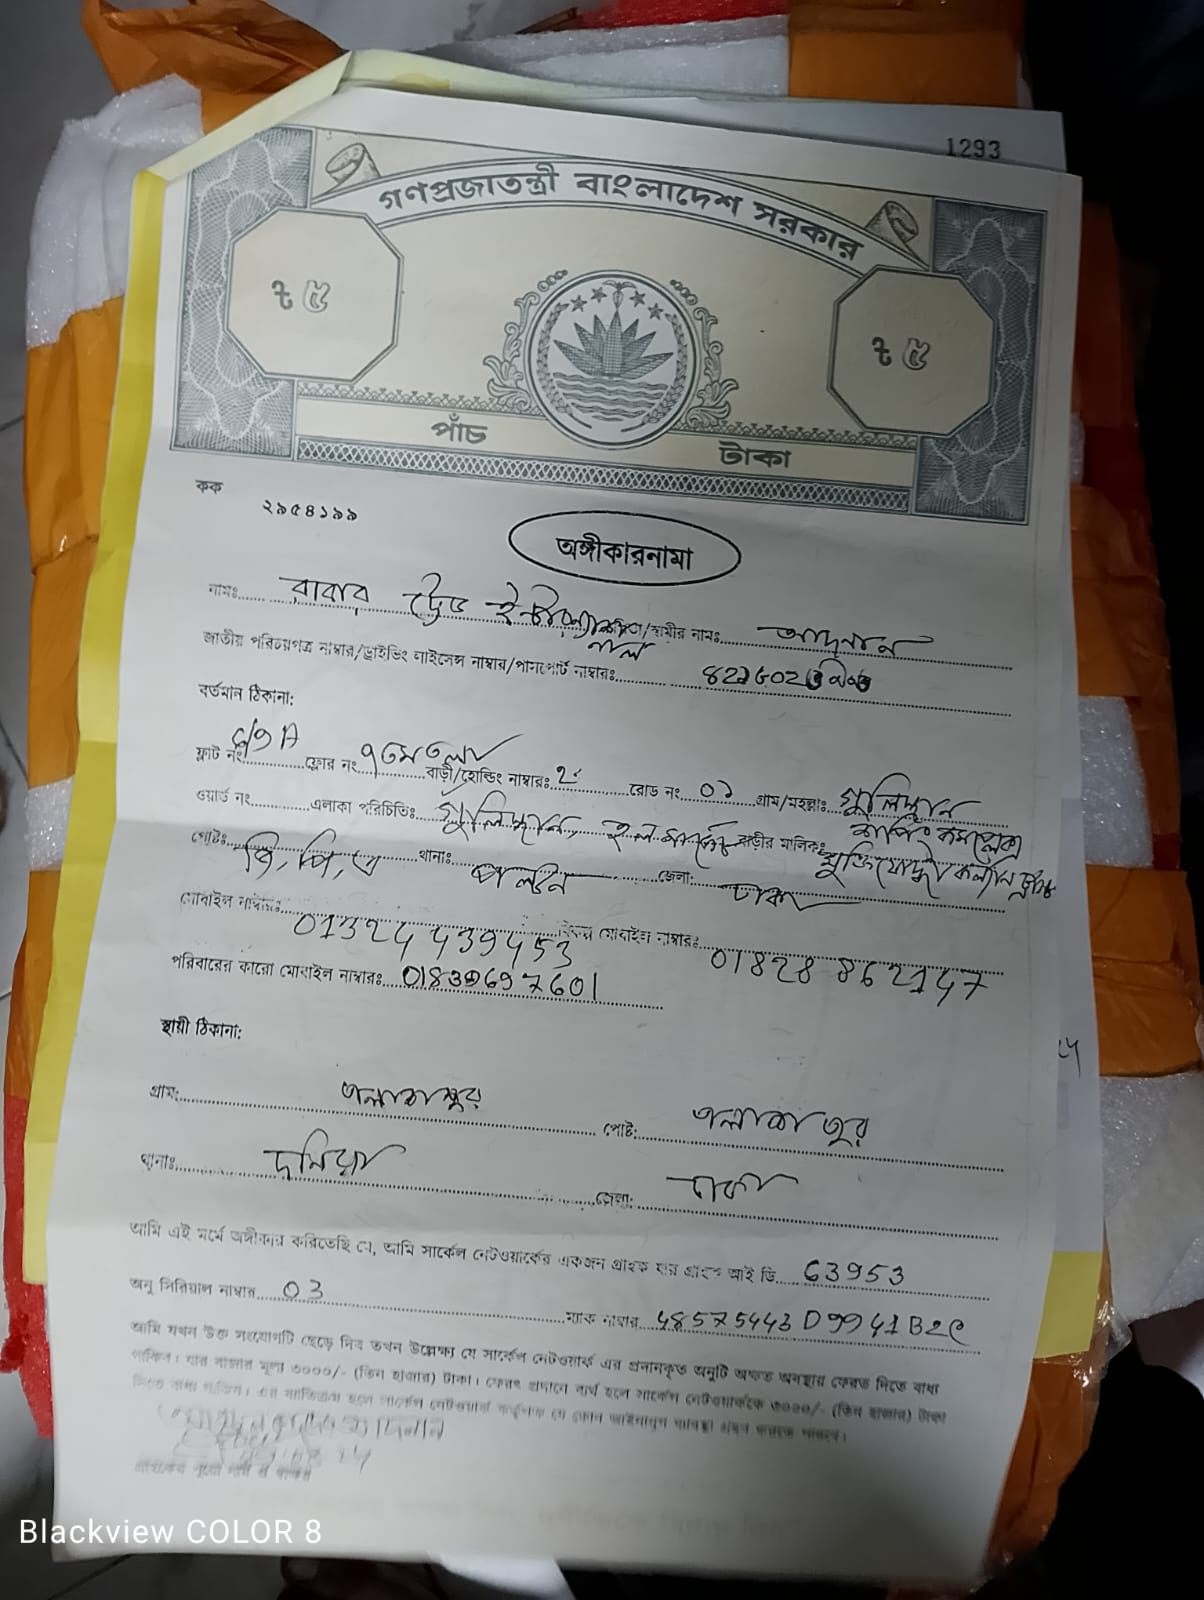 1293
গণপ্রজাতন্ত্রী বাংলাদেশ সরকার
৳ ৫
৳ ৫
পাঁচ টাকা
কক ২৯৫৪১৯৯
অঙ্গীকারনামা
নামঃ বাবার ট্রেড ইন্টারন্যাশনাল /স্বামীর নামঃ আদনান
জাতীয় পরিচয়পত্র নাম্বার/ড্রাইভিং লাইসেন্স নাম্বার/পাসপোর্ট নাম্বারঃ
বর্তমান ঠিকানা:
ফ্লাট নং ফ্লোর নং ৭তম তলা বাড়ী/হোল্ডিং নাম্বারঃ রোড নং 01 গ্রাম/মহল্লাঃ গুলিস্থান
ওয়ার্ড নং এলাকা পরিচিতিঃ গুলিস্থান হল মার্কেট বাড়ীর মালিকঃ শপিং কমপ্লেক্স মুক্তিযোদ্ধা কল্যান ট্রাস্ট
পোষ্টঃ জি,পি,এ থানাঃ পল্টন জেলা: ঢাকা
মোবাইল নাম্বারঃ 01324439453 বিকল্প মোবাইল নাম্বারঃ 01828862147
পরিবারের কারো মোবাইল নাম্বারঃ 01839697601
স্থায়ী ঠিকানা:
গ্রাম: পোষ্ট:
থানাঃ দনিয়া জেলা: ঢাকা
আমি এই মর্মে অঙ্গীকার করিতেছি যে, আমি সার্কেল নেটওয়ার্কের একজন গ্রাহক যার গ্রাহক আই ডি 63953
অনু সিরিয়াল নাম্বার 03 ম্যাক নাম্বার 48575443D9941B2C
আমি যখন উক্ত সংযোগটি ছেড়ে দিব তখন উল্লেক্ষ্য যে সার্কেল নেটওয়ার্ক এর প্রদানকৃত অনুটি অক্ষত অবস্থায় ফেরত দিতে বাধ্য
থাকিব। যার বাজার মূল্য ৩০০০/- (তিন হাজার) টাকা। ফেরৎ প্রদানে ব্যর্থ হলে সার্কেল নেটওয়ার্ককে ৩০০০/- (তিন হাজার) টাকা
দিতে বাধ্য থাকিব। এর ব্যতিক্রম হলে সার্কেল নেটওয়ার্ক কর্তৃপক্ষ যে কোন আইনানুগ ব্যবস্থা গ্রহন করতে পারবে।
গ্রাহকের পুরো নাম ও স্বাক্ষর
Blackview COLOR 8